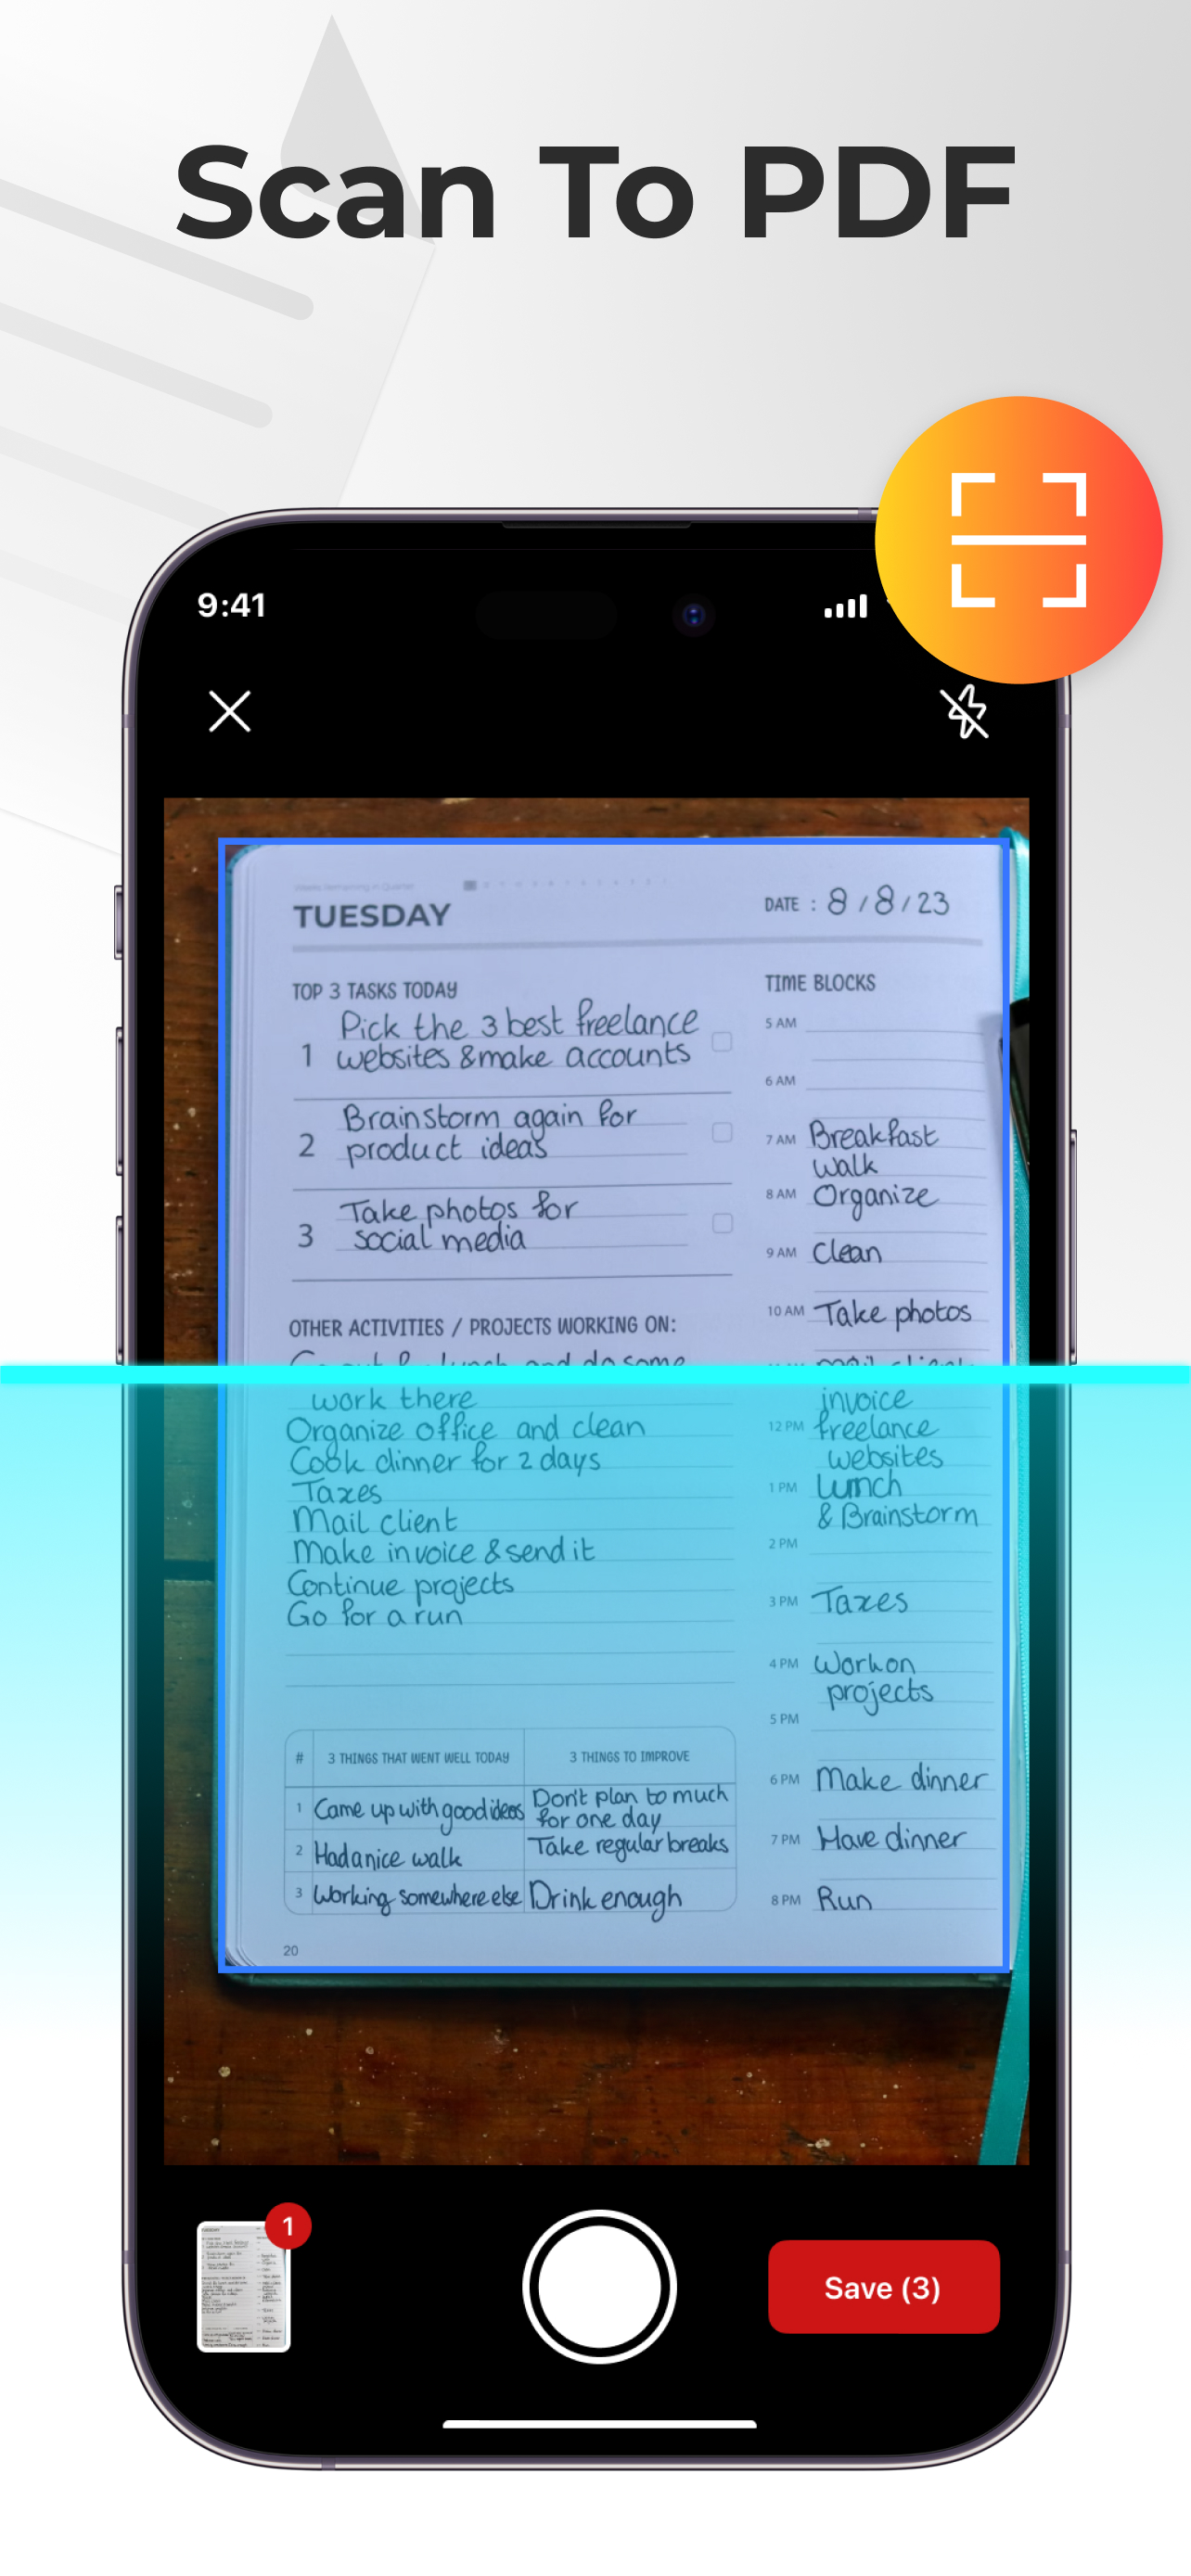 Scan To PDF
9:41
Weeks Remaining in Quarter
TUESDAY
DATE : 8 / 8 / 23
TOP 3 TASKS TODAY
1 Pick the 3 best freelance
websites & make accounts
2 Brainstorm again for
product ideas
3 Take photos for
social media
OTHER ACTIVITIES / PROJECTS WORKING ON:
Go out for lunch and do some
work there
Organize office and clean
Cook dinner for 2 days
Taxes
Mail client
Make invoice & send it
Continue projects
Go for a run
# 3 THINGS THAT WENT WELL TODAY 3 THINGS TO IMPROVE
1 Came up with good ideas Don't plan to much
for one day
2 Had a nice walk Take regular breaks
3 Working somewhere else Drink enough
20
TIME BLOCKS
5 AM
6 AM
7 AM Breakfast
walk
8 AM Organize
9 AM Clean
10 AM Take photos
mail client
invoice
12 PM freelance
websites
1 PM Lunch
& Brainstorm
2 PM
3 PM Taxes
4 PM Work on
projects
5 PM
6 PM Make dinner
7 PM Have dinner
8 PM Run
1
Save (3)